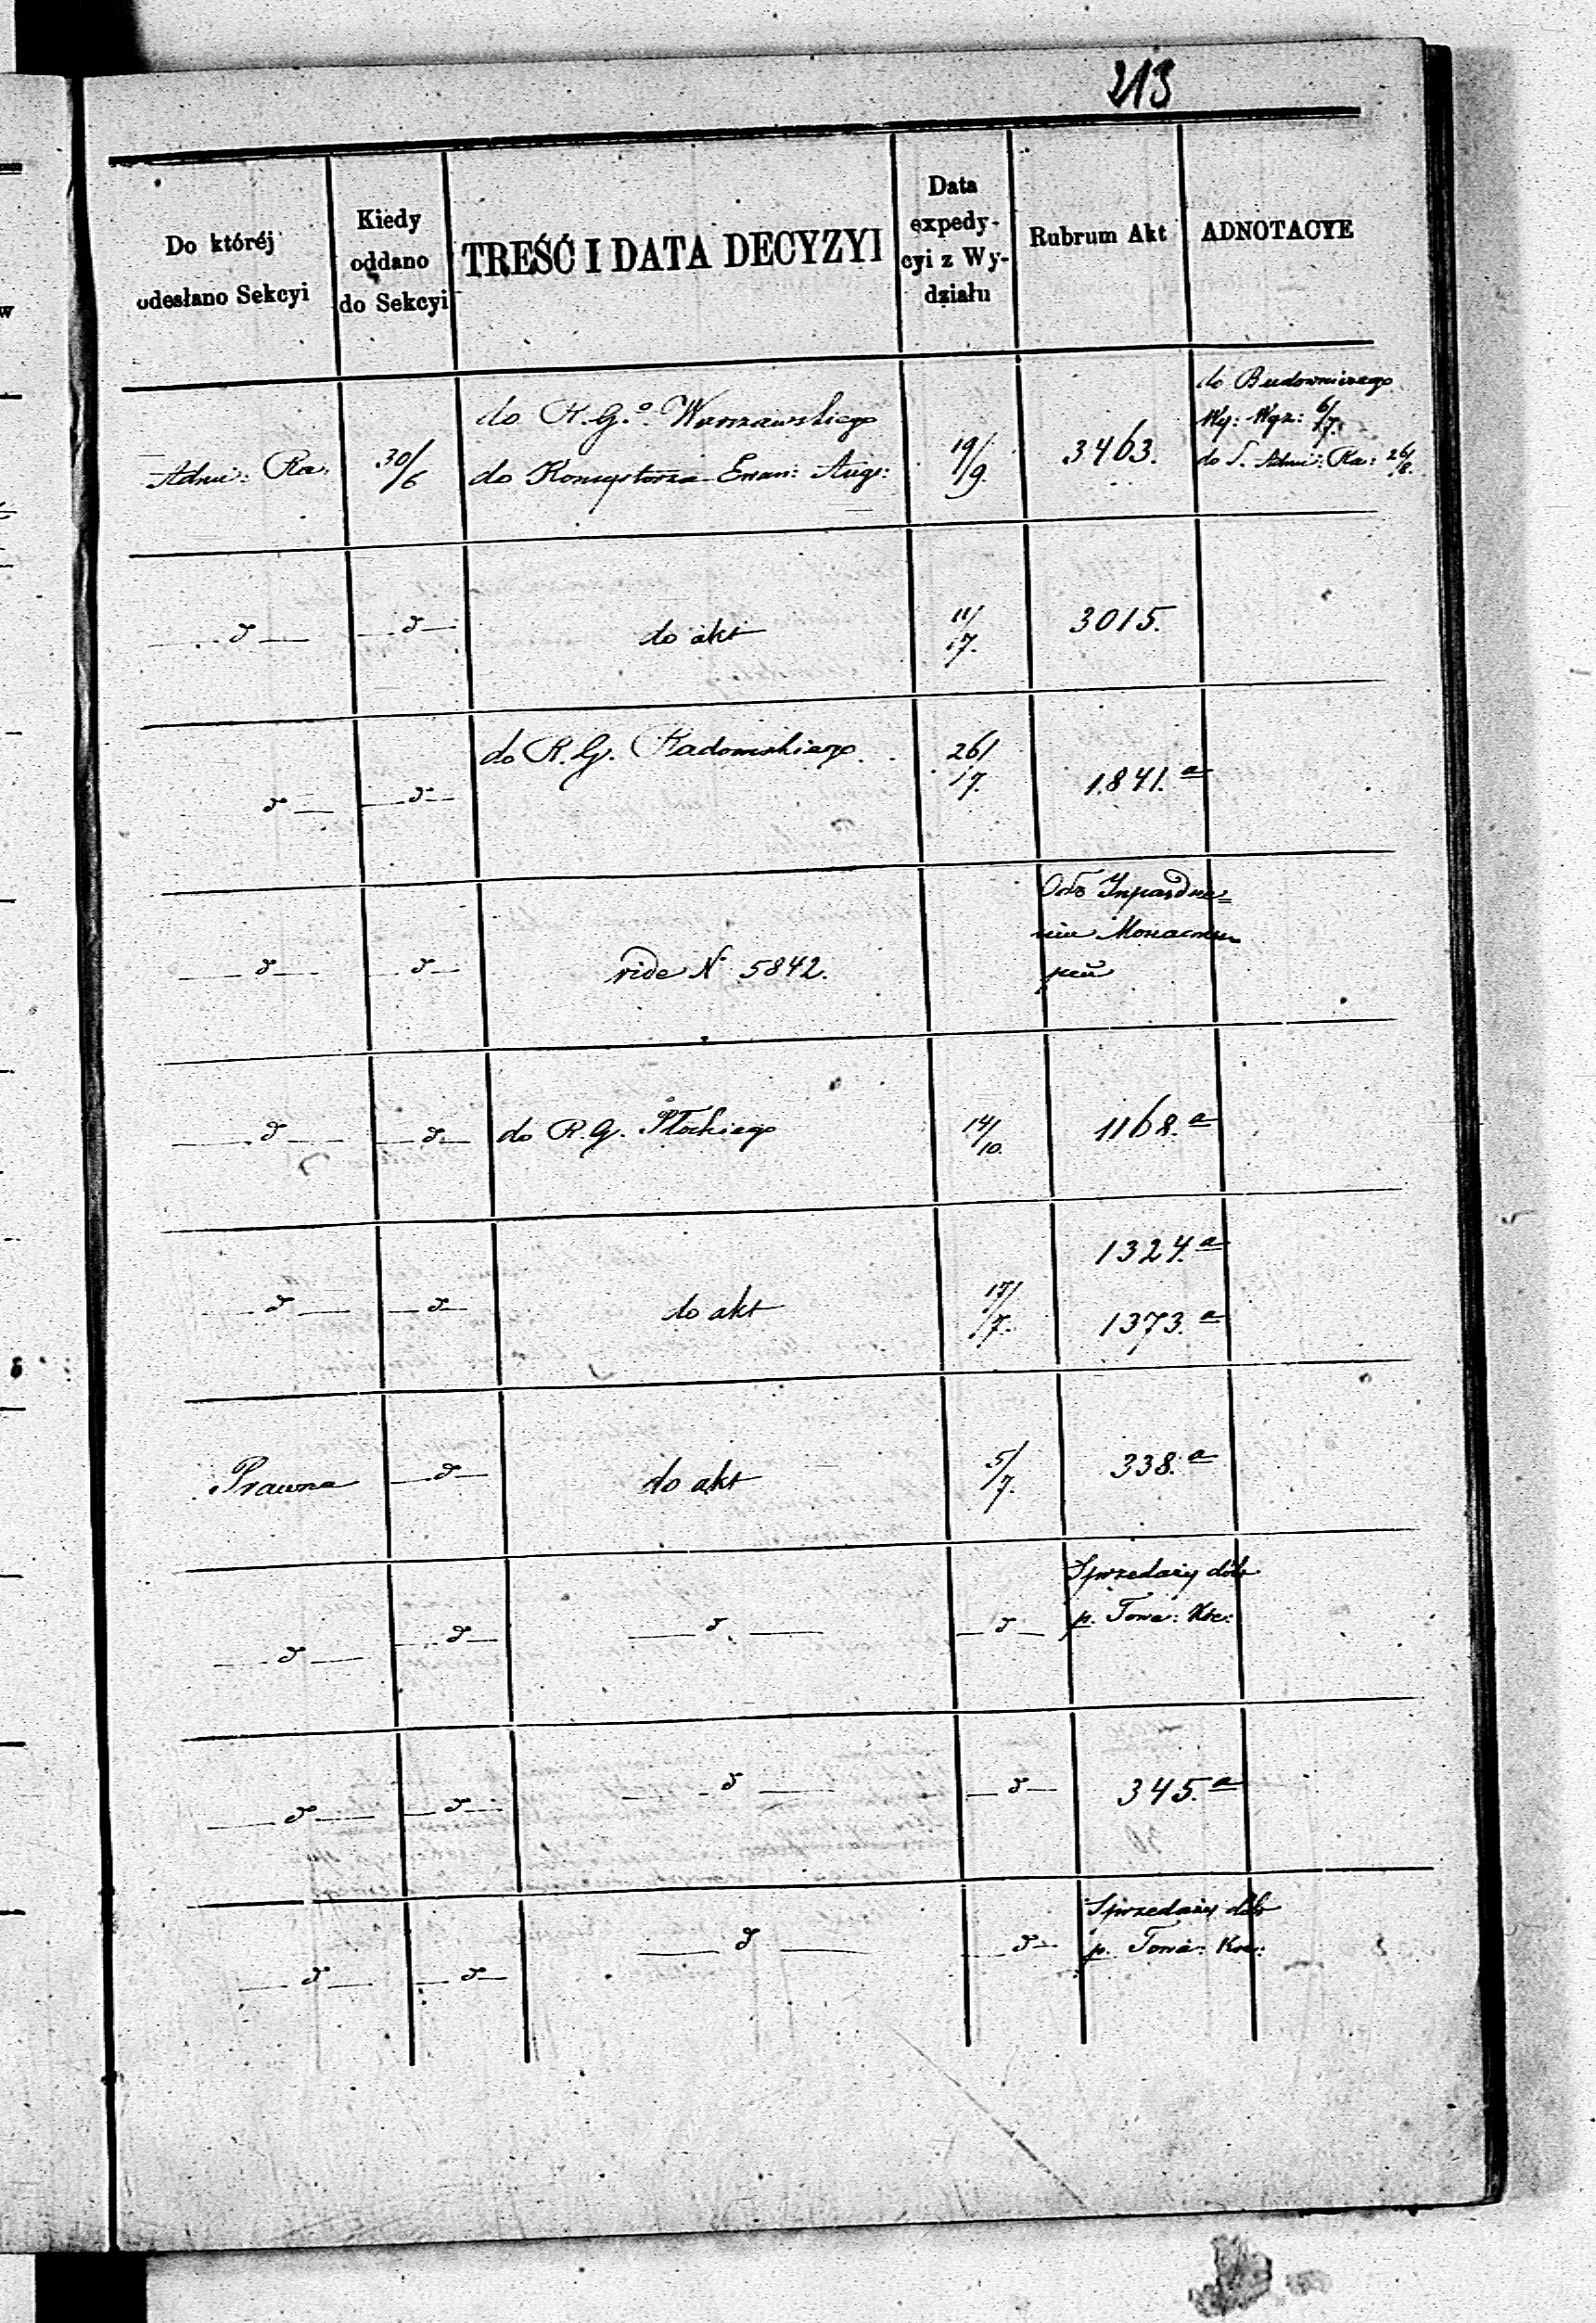 213
Do któréj
odesłano Sekcyi
Kiedy
oddano
do Sekcyi
TREŚĆ I DATA DECYZYI
Data
expedy-
cyi z Wy-
działu
Rubrum Akt
ADNOTACYE
Admi:
30/6
do R. G.o Warszawskiego
do Konsystorza Ewan: Augs:
19/9.
3463.
do Budowniczego
6/7.
do S. Admi: 26/8.
d
d
do akt
11/7.
3015.
d
d
do R. G. Radomskiego.
26/7.
1841.a
d
d
vide N 5842.
Объ Упраздне=
нiи
d
d
do R. G. Płockiego
14/10.
1168.a
d
d
do akt
17/7.
1324.a
1373.a
Prawna
d
do akt
5/7.
338.a
d
d
d
d
Sprzedaży dóbr
p. Towa: Kre:
d
d
d
d
345.a
d
d
d
d
Sprzedaży dóbr
p. Towa: Kre: